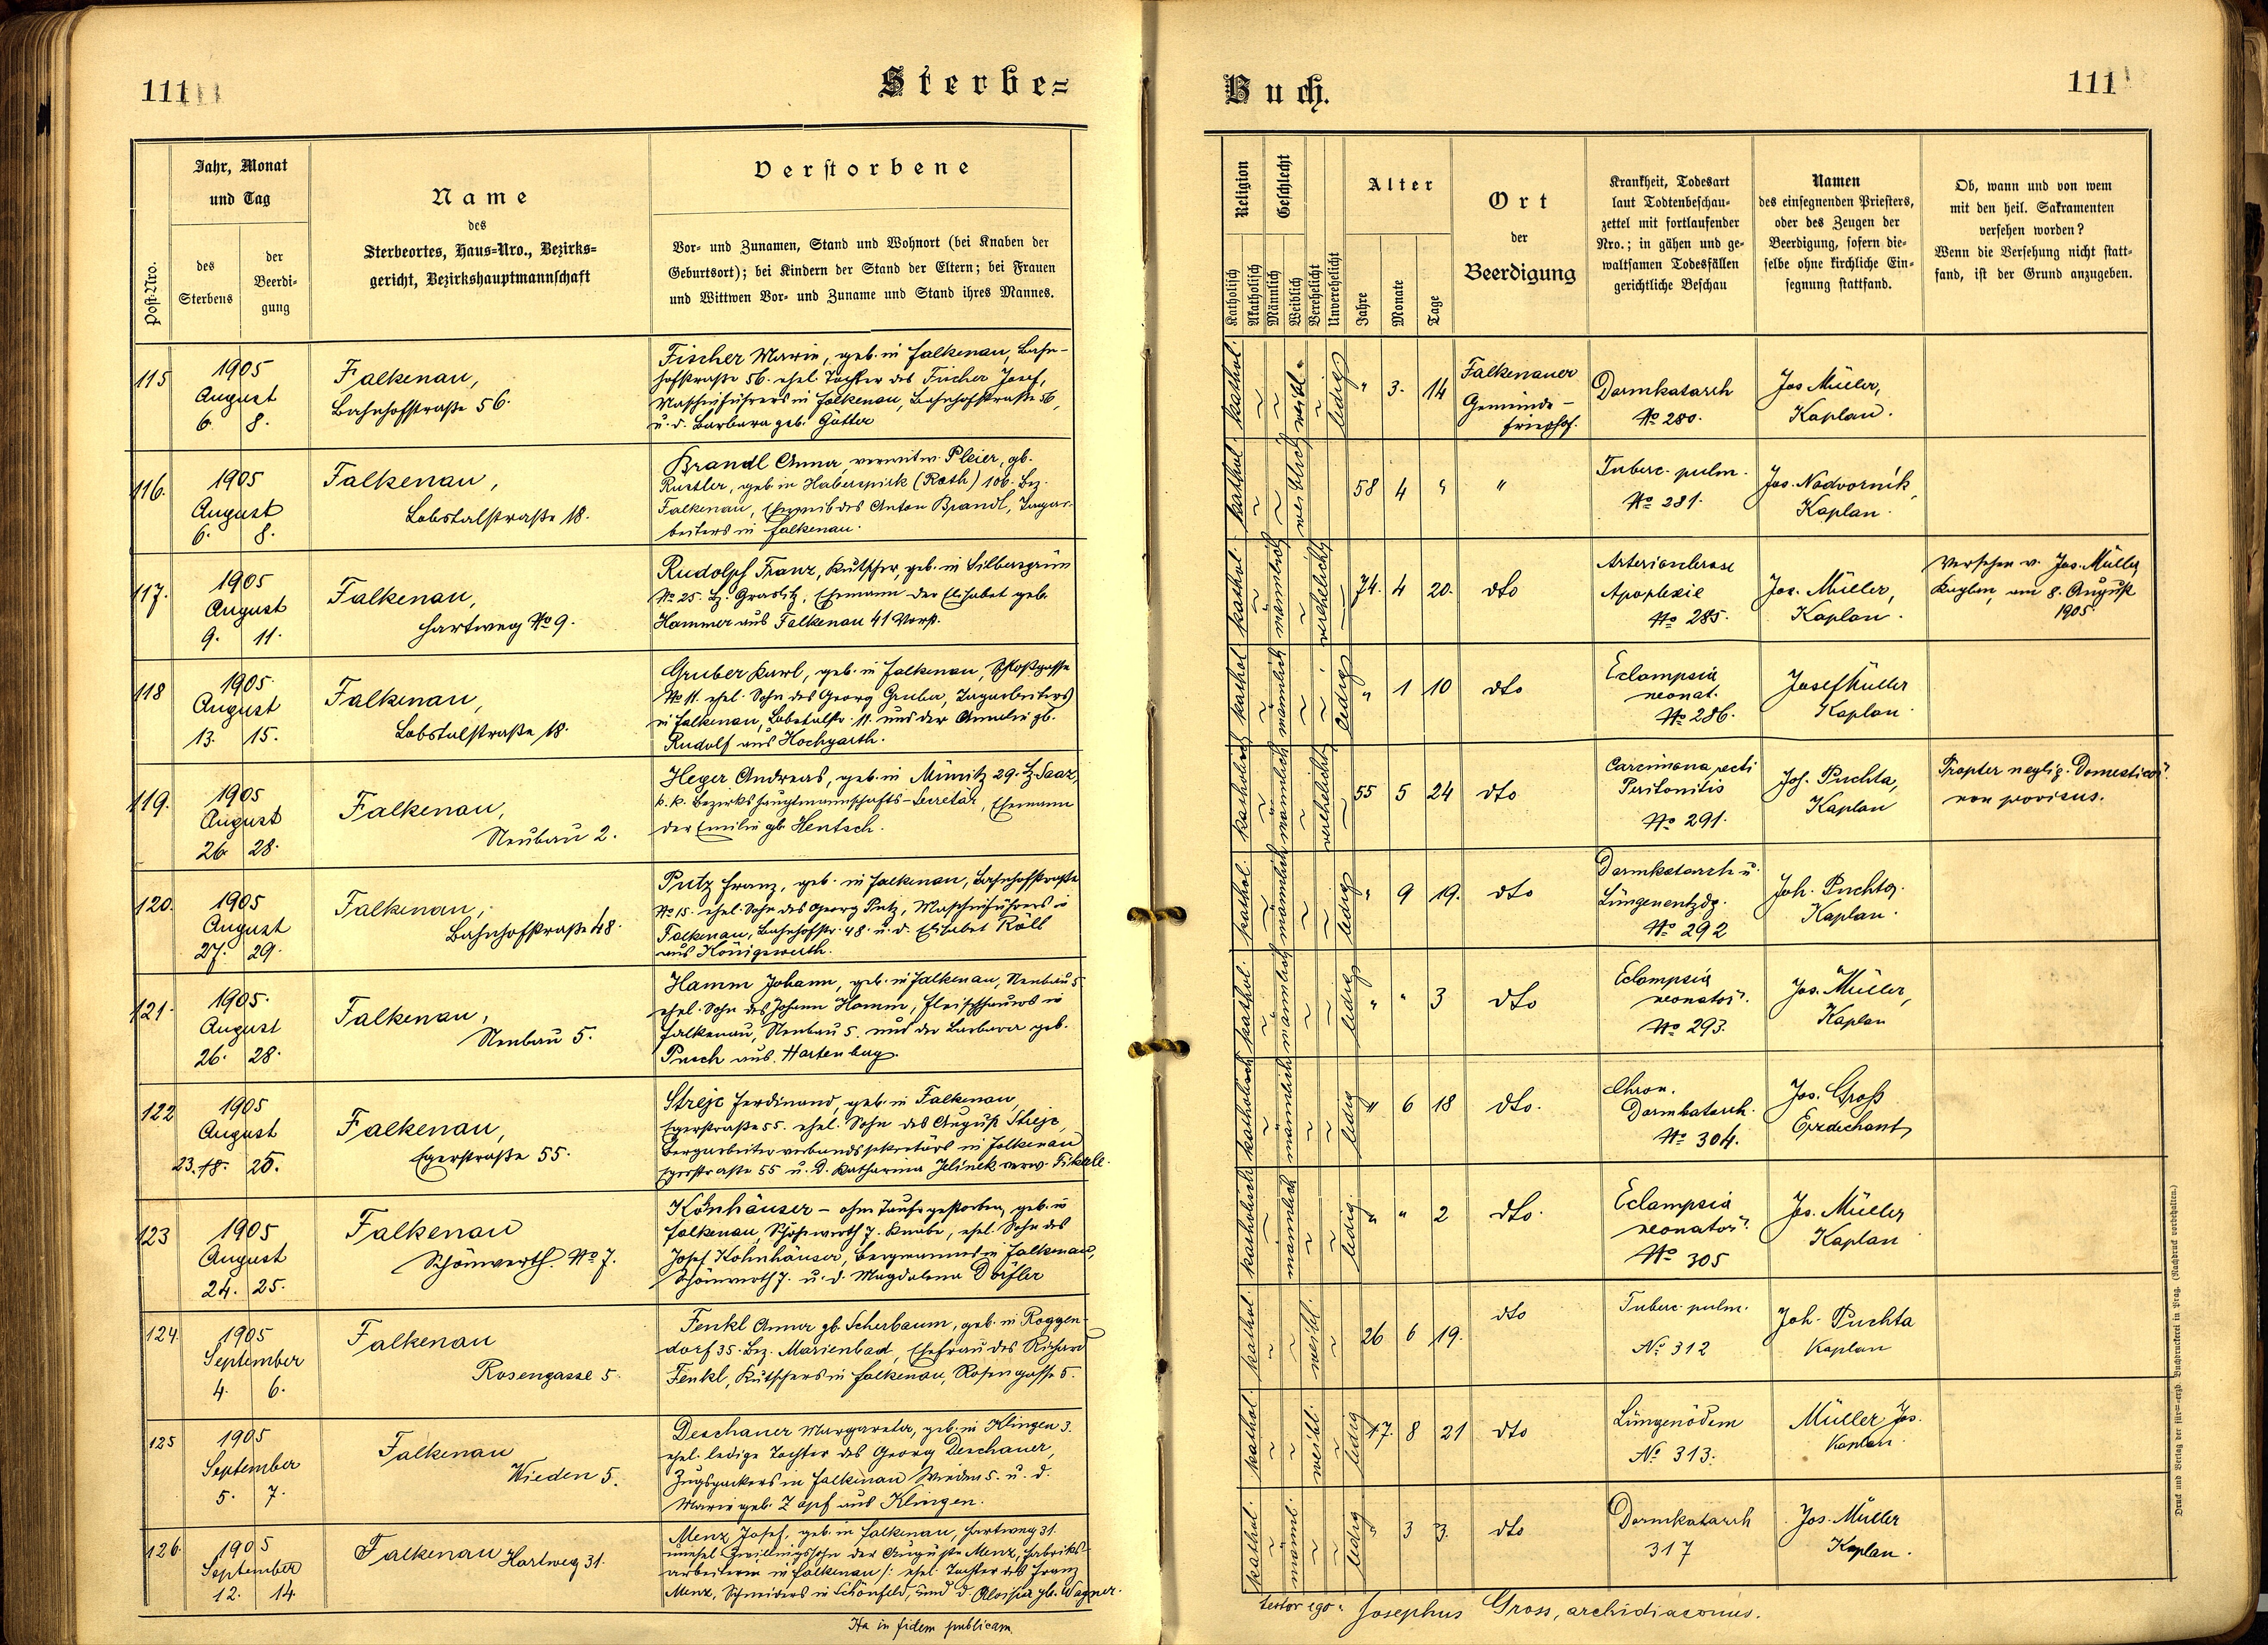 111
Sterbe=
Buch.
111
Post-Nro.
Jahr, Monat
und Tag
des
Sterbens
der
Beerdi-
gung
Name
des
Sterbeortes, Haus-Nro., Bezirks-
gericht, Bezirkshauptmannschaft
Verstorbene
Vor- und Zunamen, Stand und Wohnort (bei Knaben der
Geburtsort); bei Kindern der Stand der Eltern; bei Frauen
und Wittwen Vor- und Zuname und Stand ihres Mannes.
Religion
Geschlecht
Katholisch
Akatholisch
Männlich
Weiblich
Verehelicht
Unverehelicht
Alter
Jahre
Monate
Tage
Ort
der
Beerdigung
Krankheit, Todesart
laut Todtenbeschau-
zettel mit fortlaufender
Nro.; in gähen und ge-
waltsamen Todesfällen
gerichtliche Beschau
Namen
des einsegnenden Priesters,
oder des Zeugen der
Beerdigung, sofern die-
selbe ohne kirchliche Ein-
segnung stattfand.
Ob, wann und von wem
mit den heil. Sakramenten
versehen worden?
Wenn die Versehung nicht statt-
fand, ist der Grund anzugeben.
115
1905
August
6. 8.
Falkenau,
Bahnhofstraße 56.
Fischer Marie, geb. in Falkenau, Bahn-
hofstraße 56. ehel. Tochter des Fischer Josef,
Maschinführers in Falkenau, Bahnhofstraße 56,
u. d. Barbara geb. Götter
kathol. weibl. ledig
" 3. 14
Falkenauer
Gemeinde-
friedhof.
Darmkatarrh
No 280.
Jos Müller,
Kaplan.
116.
1905
August
6. 8.
Falkenau,
Lobstalstraße 18.
Brandl Anna, verwitw. Pleier, gb.
Rustler, geb. in Haberspirk (Rath) 106. Bez.
Falkenau, Eheweib des Anton Brandl, Tagar-
beiters in Falkenau.
kathol.
58 4 "
"
Tuberc. pulm.
No 281.
Jos. Nadvorník,
Kaplan.
117.
1905
August
9. 11.
Falkenau,
Hartweg No 9.
Rudolph Franz, Kutscher, geb. in Silbersgrün
No 25. Bz. Graslitz, Ehemann der Elisabet geb.
Hammer aus Falkenau 41 Vorst.
kathol. männlich verehelicht
74. 4 20.
dto
Arteriosclerose
Apoplexie
No 285.
Jos. Müller,
Kaplan.
Versehen v. Jos. Müller
Kaplan, am 8. August
1905
118
1905.
August
13. 15.
Falkenau,
Lobstalstraße 18.
Gruber Karl, geb. in Falkenau, Schloßgasse
No 11. ehel. Sohn des Georg Gruber, Tagarbeiters
in Falkenau, Lobstalstr. 11. und der Amalie gb.
Rudolf aus Hochgarth.
kathol männlich ledig
" 1 10
dto
Eclampsia
neonat.
No 286.
Josef Müller
Kaplan
119.
1905
August
26 28.
Falkenau,
Neubau 2.
Heger Andreas, geb. in Miмitz 29. Bz. Saaz,
k. k. Bezirkshauptmannschafts-Secretär, Ehemann
der Emilie gb. Hentsch.
katholisch männlich verehelicht
55 5 24
dto
Carcinoma recti
Peritonitis
No 291.
Joh. Puchta,
Kaplan
Propter neglig. Domesticor.
non provisus.
120.
1905
August
27. 29.
Falkenau,
Bahnhofstraße 48.
Putz Franz, geb. in Falkenau, Bahnhofstraße
No 15. ehel. Sohn des Georg Putz, Maschinführers in
Falkenau, Bahnhofstr. 48. u. d. Elisabet Röll
aus Königswerth.
kathol. männlich ledig
" 9 19.
dto
Darmkatarrh u.
Lungenentzdg.
No 292
Joh. Puchta.
Kaplan.
121.
1905.
August
26. 28.
Falkenau,
Neubau 5.
Hamm Johann, geb. in Falkenau, Neubau 5
ehel. Sohn des Johann Hamm, Fleischhauers in
Falkenau, Neubau 5. und der Barbara geb.
Pusch aus Hartenberg.
kathol. männlich ledig
" " 3
dto
Eclampsia
neonator.
No 293.
Jos. Müller,
Kaplan
122
1905
August
23. 18. 25.
Falkenau,
Egerstraße 55.
Strejc Ferdinand, geb. in Falkenau,
Egerstraße 55. ehel. Sohn des August Strejc,
Bergarbeiterverbandssekretärs in Falkenau
Egerstraße 55 u. d. Katharina Jelinek verw. Fikerle.
katholisch männlich ledig
" 6 18
dto.
Chron.
Darmkatarrh.
No 304.
Jos. Groß
Erzdechant
123
1905
August
24. 25.
Falkenau
Schönwerth No 7.
Könhäuser - ohne Taufe gestorben, geb. in
Falkenau, Schönwerth 7. Knabe, ehel. Sohn des
Josef Kohnhäuser, Bergmannes in Falkenau,
Schönwerth 7. u. d. Magdalena Dörfler
katholisch männlich ledig.
" " 2
dto.
Eclampsia
neonator.
No 305
Jos. Müller
Kaplan
124.
1905
September
4. 6.
Falkenau
Rosengasse 5.
Fenkl Anna gb. Scherbaum, geb. in Roggen-
dorf 35. Bez. Marienbad, Ehefrau des Richard
Fenkl, Kutschers in Falkenau, Rosengasse 5.
kathol. weibl.
26 6 19.
dto
Tuberc. pulm.
No 312
Joh. Puchta
Kaplan
125
1905
September
5. 7.
Falkenau
Wieden 5.
Deschauer Margareta, geb. in Klingen 3.
ehel. ledige Tochter des Georg Deschauer,
Zugspackers in Falkenau Wieden 5. u. d.
Marie geb. Zapf aus Klingen.
kathol. weibl. ledig
17. 8 21
dto
Lungenödem
No 313.
Müller Jos.
Kaplan.
126.
1905
September
12. 14
Falkenau Hartweg 31.
Menz Josef, geb. in Falkenau, Hartweg 31.
unehel. Zwillingssohn der Auguste Menz, Fabriks-
arbeiterin in Falkenau /: ehel. Tochter des Franz
Menz, Schneiders in Schönfeld, und d. Aloisia gb. Wagner.
kathol. männl. ledig
" 3 3.
dto
Darmkatarrh
317
Jos. Müller
Kaplan.
Ita in fidem publicam.
testor ego: Josephus Gross, archidiaconus.
Druck und Verlag der fürst-erzb. Buchdruckerei in Prag. (Nachdruck vorbehalten.)